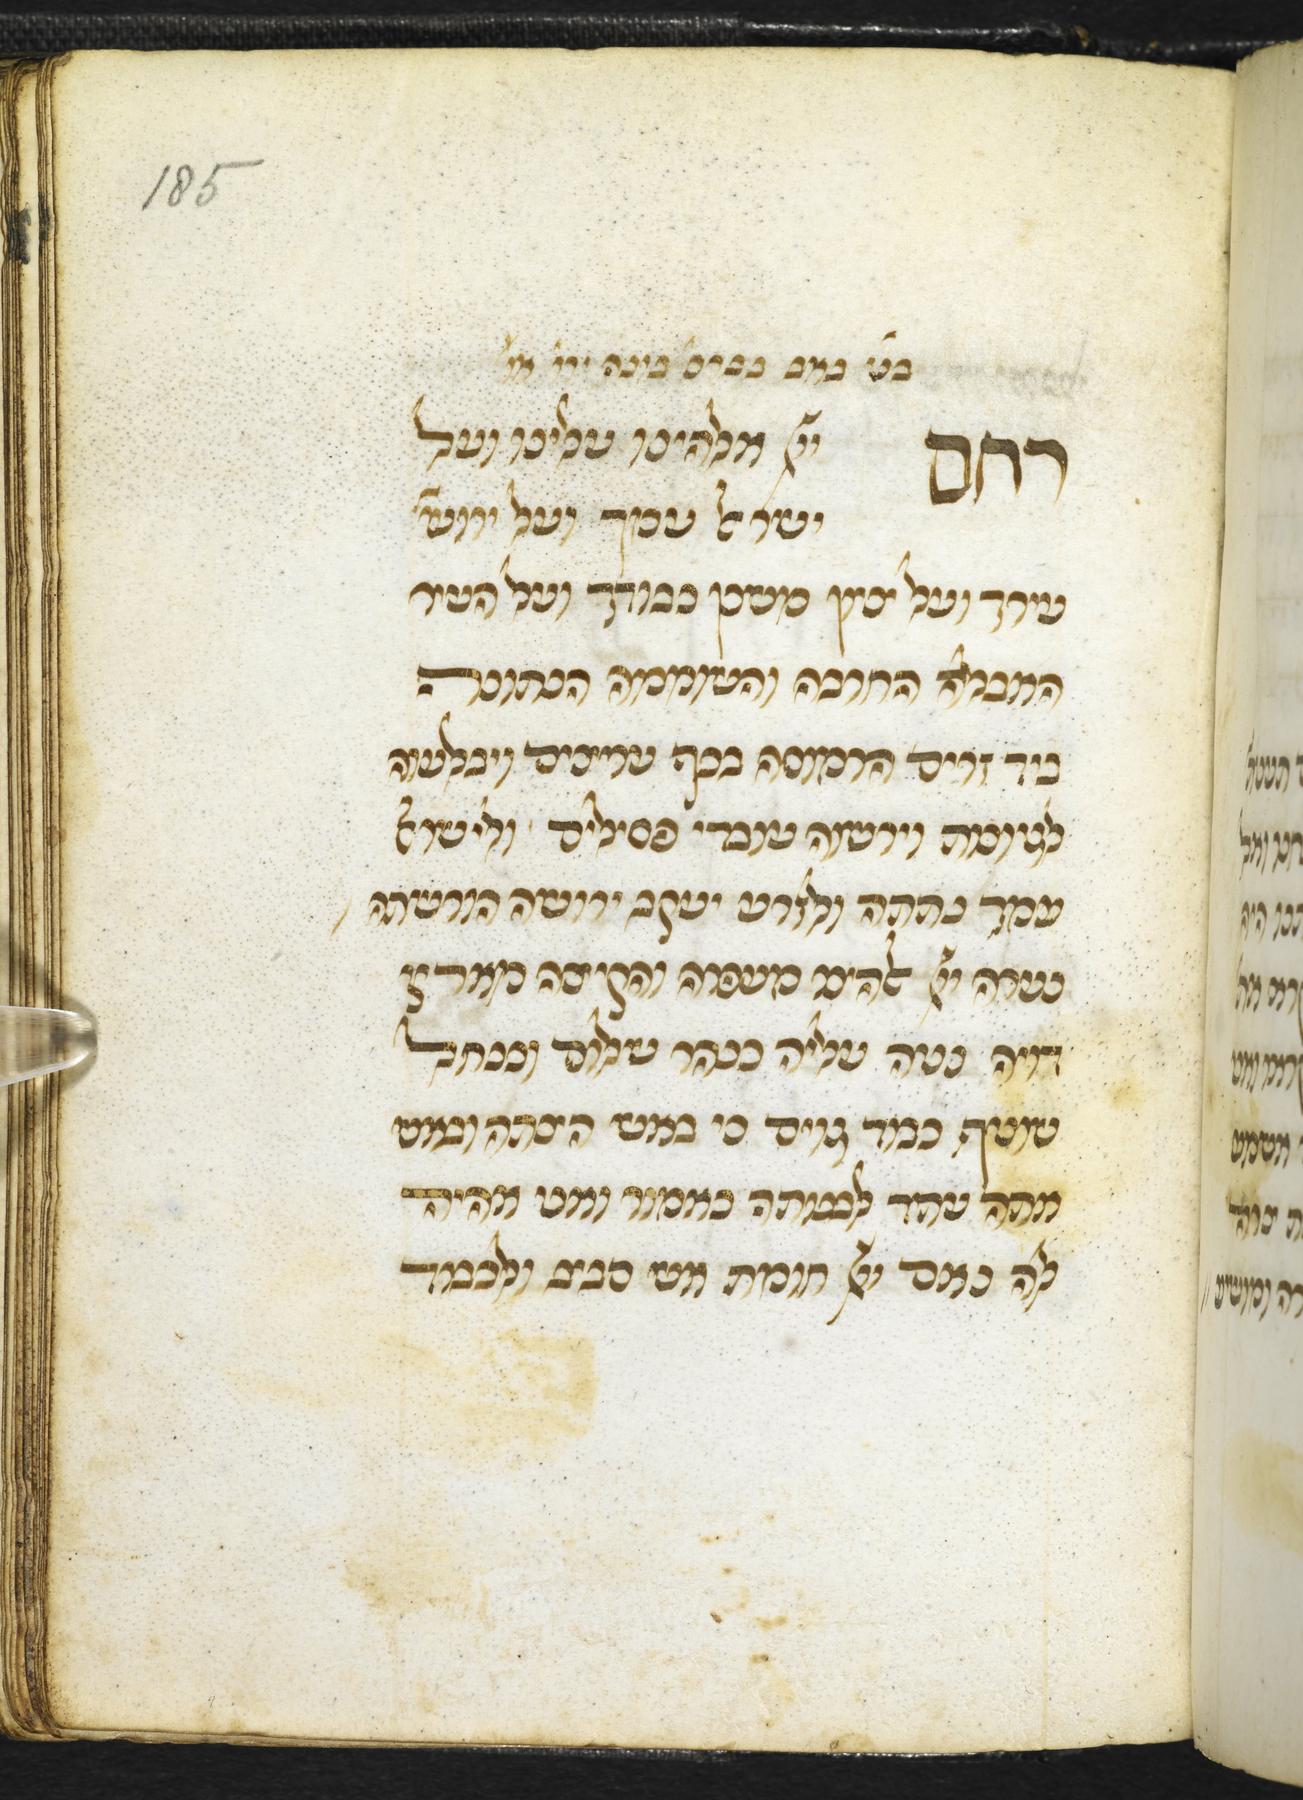 185
בט באב בברכ׳ בונה יר׳ או׳
רחם יי׳ אלהינו עלינו ועל
ישראל עמך ועל ירוש׳
עירך ועל ציון משכן כבודך ועל העיר
האבלה החרבה והשוממה הנתונה
ביד זרים הרמוסה בכף עריצים ויבלעוה
לגיונות וירשוה עובדי פסילים ולישראל
עמך נתתה ולזרע יעקב ירושה הורשתה
נערה יי׳ להים מעפרה והקיצה מארץ
דויה נטה עליה כנהר שלום וכנחל
שוטף כבוד גוים כי באש היצתה ובאש
אתה עתיד לבנותה כאמור ואני אהיה
לה נאם יי׳ חומת אש סביב ולכבוד